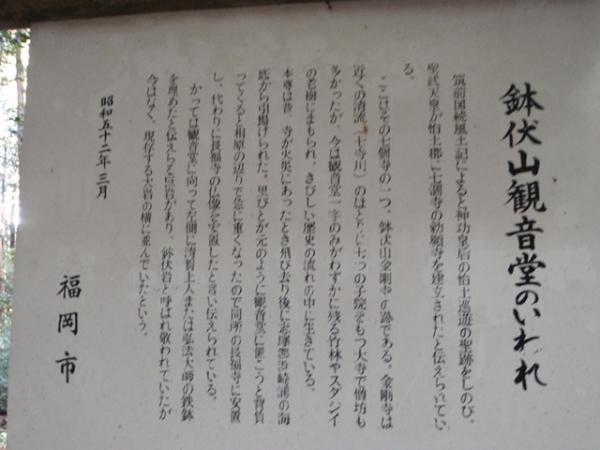 鉢伏山観音堂のいわれ
筑前国続風土記によると神功皇后の怡土巡遊の聖跡をしのび、
聖武天皇が怡土郡に七箇寺の勅願寺を建立されたと伝えられてい
る。
ここはその七個寺の一つ、鉢伏山金剛寺の跡である。金剛寺は
近くの清流(七寺川)のほとりに七つの子院をもつ大寺で僧坊も
多かったが、今は観音堂一宇のみがわずかに残る竹林やスダジイ
の老樹にまもられ、きびしい歴史の流れの中に生きている。
本尊は昔、寺が火災にあったとき飛び去り後に志摩郡浜崎浦の海
底から引揚げられた。里びとが元のように観音堂に置こうと背負
ってくると相原の辺りで急に重くなったので同所の長福寺に安置
し、代わりに長福寺の仏像を安置したと言い伝えられている。
かつては観音堂に向って左側に清賀上人または弘法大師の鉄鉢
を埋めたと伝えられる巨岩があり、鉢伏岩と呼ばれ敬われていたが
今はなく、現存する大岩の横に並んでいたという。
昭和五十二年三月
福岡市